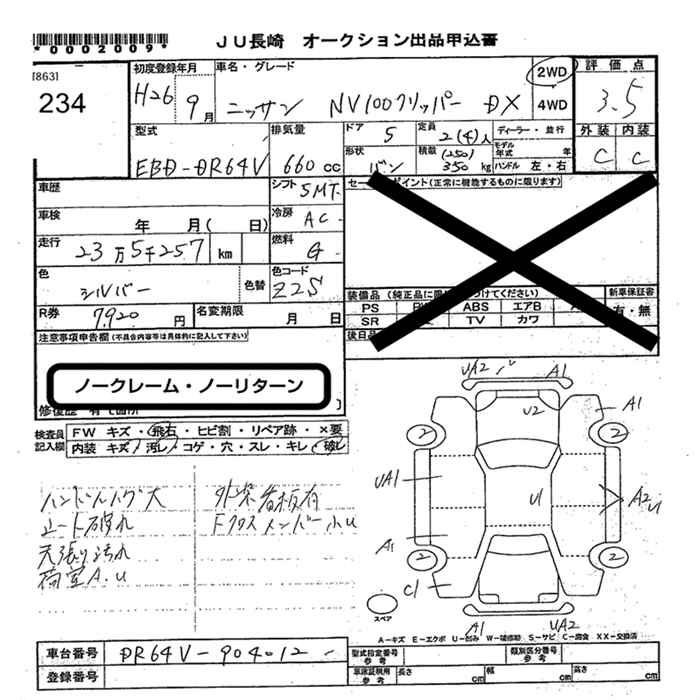 *0002009* ＪＵ長崎 オークション出品申込書
[863]
234
初度登録年月 車名・グレード 2WD 4WD 評価点
H26年 9月 ニッサン NV100クリッパー DX 3.5
型式 排気量 ドア 定員 ディーラー・並行 外装 内装
EBD-DR64V 660cc 5 2(4)人 モデル年式 年 C C
形状 バン 積載 (250) 350 kg ハンドル 左・右
車歴 シフト 5MT セールスポイント(正常に機能するものに限ります)
車検 年 月( 日) 冷房 AC
走行 23万5千257 km 燃料 G
色 シルバー 色替 色コード Z2S
装備品 (純正品に 新車保証書
PS ABS エアB 有・無
SR TV カワ
R券 7,920円 名変期限 月 日
後日
注意事項申告欄(不具合内容等は具体的に記入して下さい)
ノークレーム・ノーリターン
修復歴 有
検査員記入欄 FW キズ・飛石・ヒビ割・リペア跡・×要
内装 キズ・汚レ・コゲ・穴・スレ・キレ・破レ
ハンドル 大 外装看板有
シート破れ Fクロスメンバー小U
天張り汚れ
荷室A.U
UA2 A1
U2 A1
2 2
UA1 U1 A2 U
A1
2 2
C1
スペア
A1 UA2
A-キズ E-エクボ U-凹み W-補修跡 S-サビ C-腐食 XX-交換済
車台番号 DR64V-904012 型式指定番号 参考 類別区分番号 参考
登録番号 車庫証明用 参考 長さ cm 幅 cm 高さ cm